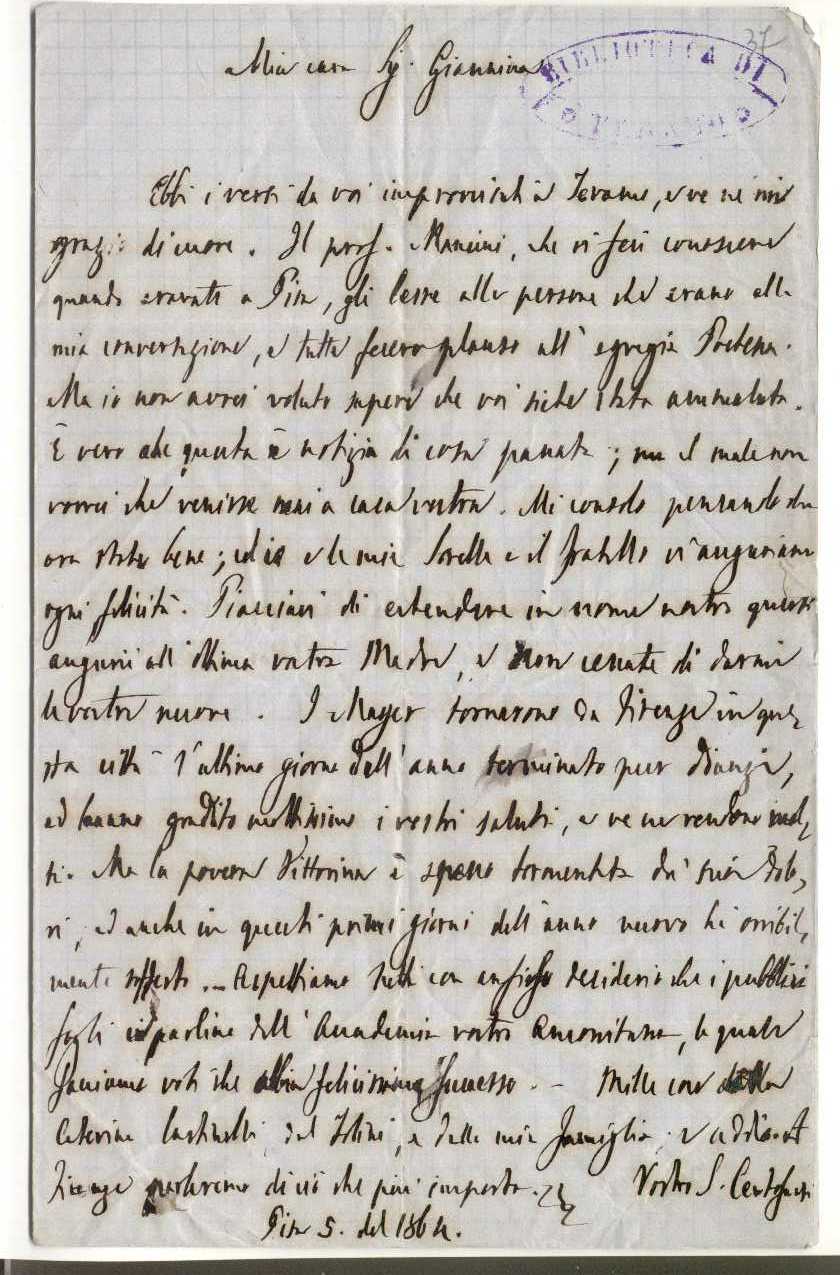 37
BIBLIOTECA DI
TERAMO
Mia cara Sig. Giannina
Ebbi i versi da voi improvisati a Teramo, e ve ne rin
grazio di cuore. Il prof. Mancini, che vi feci conoscere
quando eravate a Pisa, gli lesse alle persone che erano alla
mia conversazione, e tutte fecero plauso all' egregia Poetessa.
Ma io non avrei voluto sapere che voi siete stata ammalata.
È vero che questa è notizia di cosa passata; ma il male non
vorrei che venisse mai a casa vostra. Mi consolo pensando che
ora state bene; ed io e le mie Sorelle e il fratello vi auguriamo
ogni felicità. Piacciavi di estendere in nome nostro questi
augurii all' ottima vostra Madre, e non cessate di darmi
le vostre nuove. I Mayer tornarono da Firenze in que,
sta città l'ultimo giorno dell' anno terminato pur dianzi,
ed hanno gradito moltissimo i vostri saluti, e ve ne rendono mol,
ti. Ma la povera Vittorina è spesso tormentata da' suoi dolo,
ri, ed anche in questi primi giorni dell' anno nuovo ha orribil,
mente sofferto. – Aspettiamo tutti con ansioso desiderio che i pubblici
fogli parlino dell' Accademia vostra Anconitana, la quale
facciamo voti che abbia felicissimo successo. – Mille cose della
Caterina dal e dalla mia famiglia; e addio. A
Firenze parleremo di ciò che più importa. Vostro S. Centofanti
Pisa 5. del 1864.